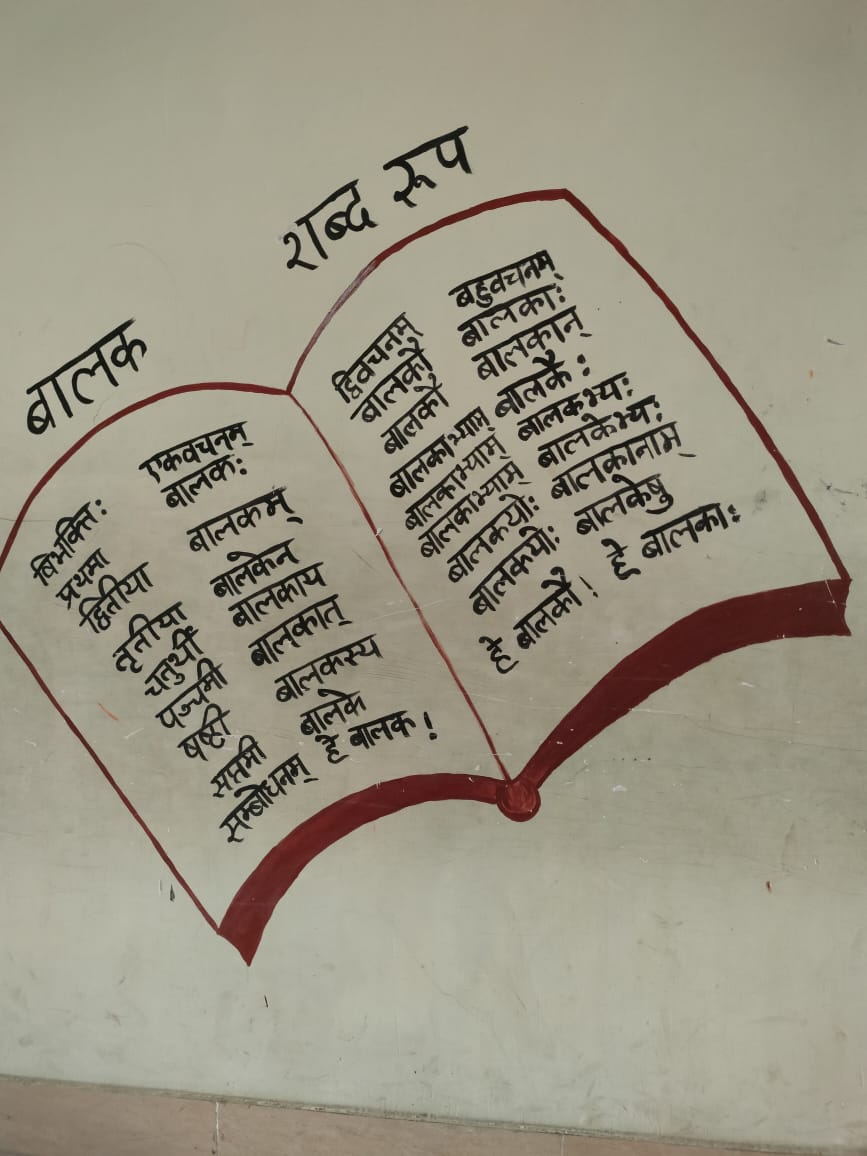 बालक शब्द रूप
बिभक्तिः एकवचनम् द्विवचनम् बहुवचनम्
प्रथमा बालकः बालकौ बालकाः
द्वितीया बालकम् बालकौ बालकान्
तृतीया बालकेन बालकाभ्याम् बालकैः
चतुर्थी बालकाय बालकाभ्याम् बालकभ्यः
पञ्चमी बालकात् बालकाभ्याम् बालकेभ्यः
षष्ठी बालकस्य बालकयोः बालकानाम्
सप्तमी बालके बालकयोः बालकेषु
सम्बोधनम् हे बालक! हे बालकौ! हे बालकाः